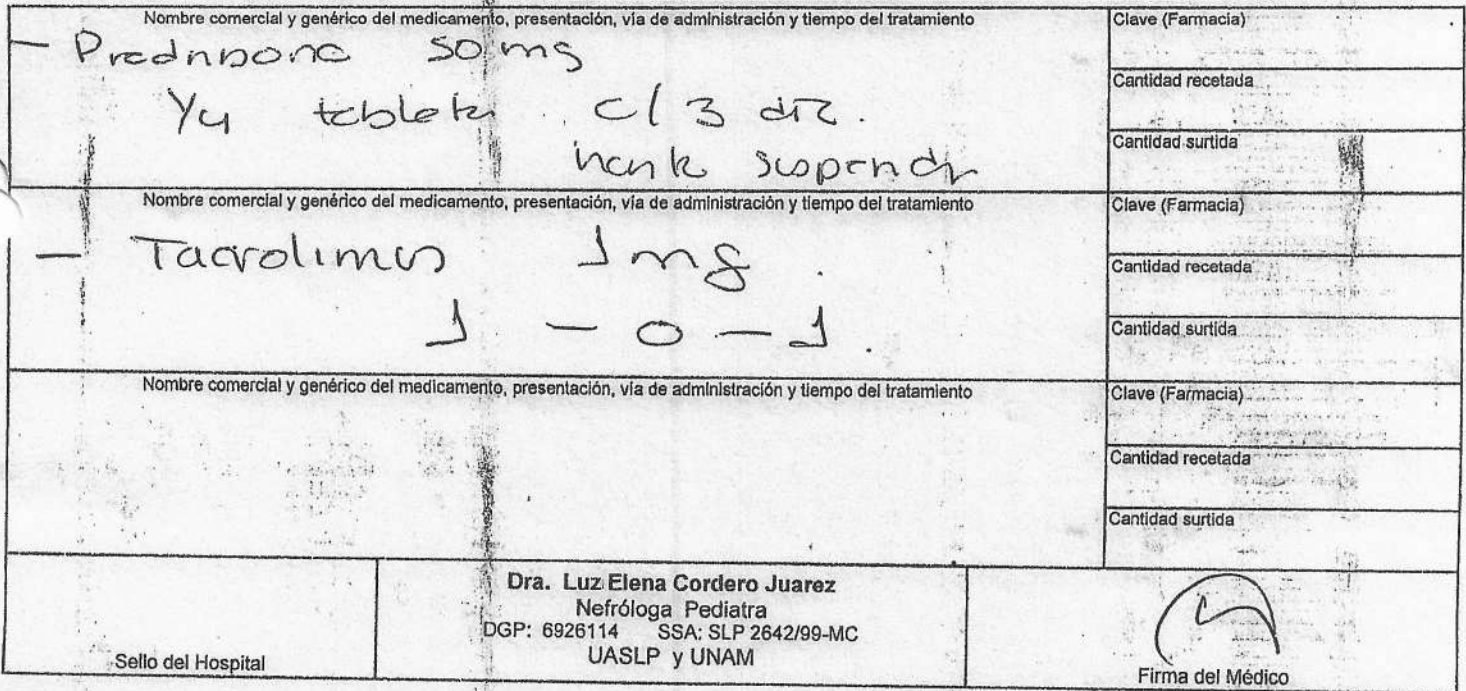 Nombre comercial y genérico del medicamento, presentación, vía de administración y tiempo del tratamiento
Clave (Farmacia)
- Prednisona 50 mg
Cantidad recetada
1/4 tableta c/3 día.
Cantidad surtida
Nombre comercial y genérico del medicamento, presentación, vía de administración y tiempo del tratamiento
Clave (Farmacia)
- Tacrolimus 1mg.
Cantidad recetada
1 - 0 - 1.
Cantidad surtida
Nombre comercial y genérico del medicamento, presentación, vía de administración y tiempo del tratamiento
Clave (Farmacia)
Cantidad recetada
Cantidad surtida
Dra. Luz Elena Cordero Juarez
Nefróloga Pediatra
DGP: 6926114 SSA: SLP 2642/99-MC
UASLP y UNAM
Sello del Hospital
Firma del Médico